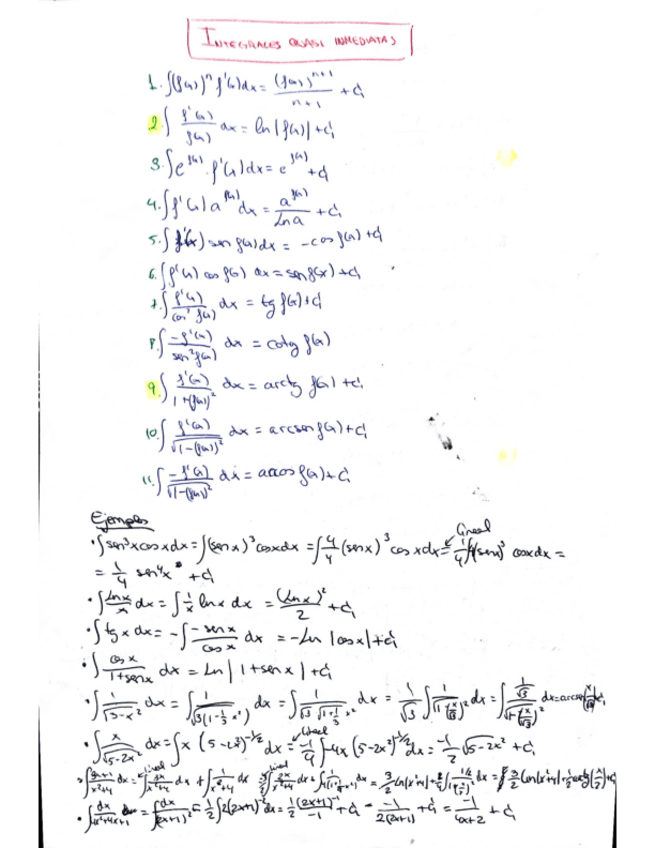 INTEGRALES QUASI INMEDIATAS
1. ∫(f(x))^n f'(x)dx = (f(x))^{n+1}/(n+1) + C
2. ∫ f'(x)/f(x) dx = ln|f(x)| + C
3. ∫e^{f(x)} · f'(x)dx = e^{f(x)} + C
4. ∫f'(x) a^{f(x)} dx = a^{f(x)}/Ln a + C
5. ∫ f'(x) sen f(x) dx = -cos f(x) + C
6. ∫f'(x) cos f(x) dx = sen f(x) + C
7. ∫ f'(x)/cos² f(x) dx = tg f(x) + C
8. ∫ -f'(x)/sen² f(x) dx = cotg f(x)
9. ∫ f'(x)/(1+(f(x))²) dx = arctg f(x) + C
10. ∫ f'(x)/√(1-(f(x))²) dx = arcsen f(x) + C
11. ∫ -f'(x)/√(1-(f(x))²) dx = arcos f(x) + C
Ejemplos
· ∫sen³x cosx dx = ∫(senx)³ cosx dx = ∫4/4 (senx)³ cosx dx = 1/4 ∫4(senx)³ cosx dx =
= 1/4 sen⁴x + C
· ∫ Lnx/x dx = ∫ 1/x lnx dx = (Lnx)²/2 + C
· ∫tgx dx = -∫ -senx/cosx dx = -Ln|cosx| + C
· ∫ cosx/(1+senx) dx = Ln|1+senx| + C
· ∫ 1/√(3-x²) dx = ∫ 1/√(3(1-1/3 x²)) dx = ∫ 1/(√3 √(1-1/3 x²)) dx = 1/√3 ∫ 1/√(1-(x/√3)²) dx = ∫ (1/√3)/√(1-(x/√3)²) dx = arcsen(x/√3) + C
· ∫ x/√(5-2x²) dx = ∫x (5-2x²)^{-1/2} dx = -1/4 ∫-4x (5-2x²)^{-1/2} dx = -1/2 √(5-2x²) + C
· ∫ dx/(4x²+4x+1) = ∫ dx/(2x+1)² = 1/2 ∫2(2x+1)^{-2} dx = 1/2 (2x+1)^{-1}/-1 + C = -1/(2(2x+1)) + C = -1/(4x+2) + C